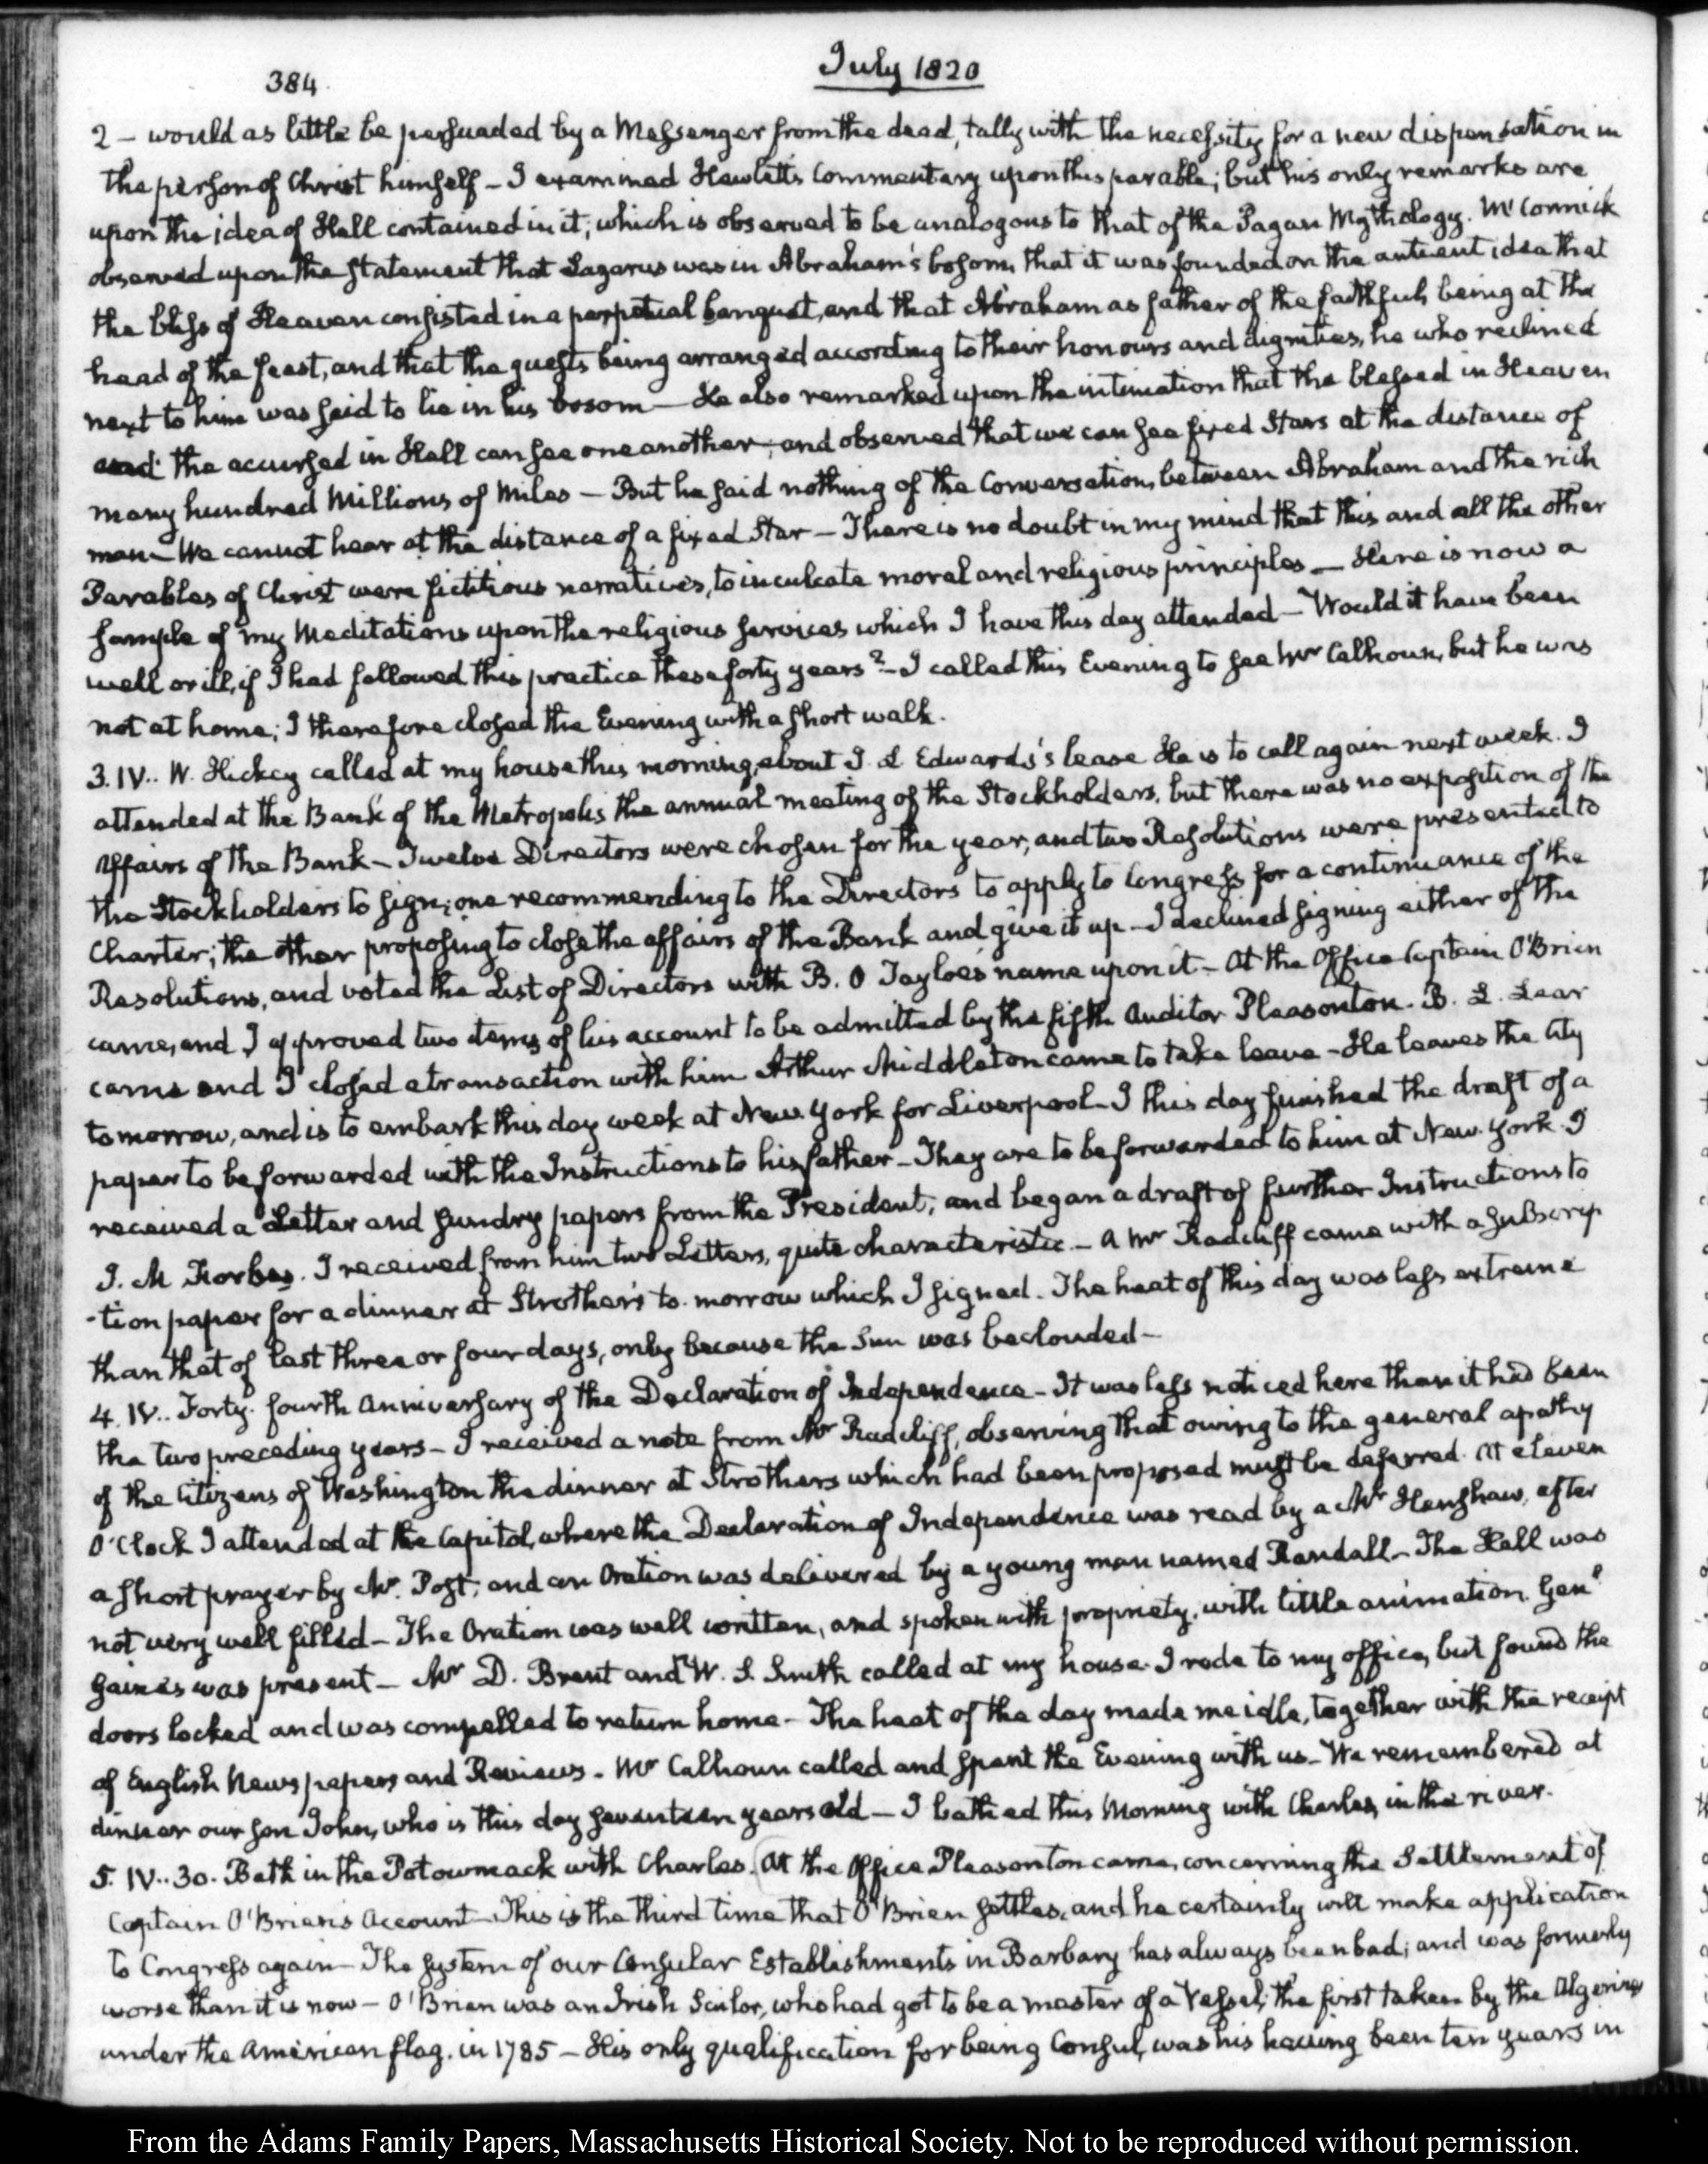 384
July 1820
2 – would as little be persuaded by a Messenger from the dead, tally with the necessity for a new dispensation in
the person of Christ himself – I examined Hewlett's Commentary upon this parable; but his only remarks are
upon the idea of Hell contained in it; which is observed to be analogous to that of the Pagan Mythology. McCormick
observed upon the statement that Lazarus was in Abraham's bosom, that it was founded on the antient idea that
the bliss of Heaven consisted in a perpetual banquet, and that Abraham as father of the faithful, being at the
head of the feast, and that the guests being arranged according to their honours and dignities, he who reclined
next to him was said to lie in his bosom – He also remarked upon the intimation that the blessed in Heaven
and the accursed in Hell can see one another, and observed that we can see fixed Stars at the distance of
many hundred Millions of Miles – But he said nothing of the Conversation, between Abraham and the rich
man – We cannot hear at the distance of a fixed Star – There is no doubt in my mind that this and all the other
Parables of Christ were fictitious narratives, to inculcate moral and religious principles – Here is now a
sample of my Meditations upon the religious services which I have this day attended – Would it have been
well or ill, if I had followed this practice these forty years? – I called this Evening to see Mr Calhoun, but he was
not at home; I therefore closed the Evening with a short walk.
3. IV.. W. Hickey called at my house this morning, about J. L Edwards's lease He is to call again next week. I
attended at the Bank of the Metropolis the annual meeting of the Stockholders, but there was no exposition of the
affairs of the Bank – Twelve Directors were chosen for the year, and two Resolutions were presented to
the Stockholders to sign; one recommending to the Directors to apply to Congress for a continuance of the
Charter; the other proposing to close the affairs of the Bank and give it up – I declined signing either of the
Resolutions, and voted the List of Directors with B. O Tayloe's name upon it – At the Office Captain O'Brien
came, and I approved two items of his account to be admitted by the fifth Auditor Pleasonton. B. L. Lear
came and I closed a transaction with him Arthur Middleton came to take leave – He leaves the City
tomorrow, and is to embark this day week at New York for Liverpool – I this day finished the draft of a
paper to be forwarded with the Instructions to his father – They are to be forwarded to him at New York. I
received a Letter and sundry papers from the President, and began a draft of further Instructions to
J. M Forbes. I received from him two Letters, quite characteristic – A Mr Radcliff came with a subscrip
-tion paper for a dinner at Strother's to-morrow which I signed. The heat of this day was less extreme
than that of last three or four days, only because the Sun was beclouded –
4. IV.. Forty-fourth Anniversary of the Declaration of Independence – It was less noticed here than it had been
the two preceding years – I received a note from Mr Radcliff, observing that owing to the general apathy
of the Citizens of Washington the dinner at Strothers which had been proposed must be deferred. At eleven
O'Clock I attended at the Capitol, where the Declaration of Independence was read by a Mr Henshaw, after
a short prayer by Mr. Post, and an Oration was delivered by a young man named Randall – The Hall was
not very well filled – The Oration was well written, and spoken with propriety, with little animation. Genl
Gaines was present – Mr D. Brent and W. S. Smith called at my house. I rode to my office, but found the
doors locked and was compelled to return home – The heat of the day made me idle, together with the receipt
of English Newspapers and Reviews. Mr Calhoun called and spent the Evening with us – We remembered at
dinner our son John, who is this day seventeen years old – I bathed this Morning with Charles, in the river.
5. IV..30. Bath in the Potowmack with Charles. At the Office Pleasonton came, concerning the Settlement of
Captain O'Brien's Account – This is the third time that O'Brien settles, and he certainly will make application
to Congress again – The System of our Consular Establishments in Barbary has always been bad; and was formerly
worse than it is now – O'Brien was an Irish Sailor, who had got to be a master of a Vessel; the first taken by the Algerines
under the American flag, in 1785 – His only qualification for being Consul, was his having been ten years in
From the Adams Family Papers, Massachusetts Historical Society. Not to be reproduced without permission.